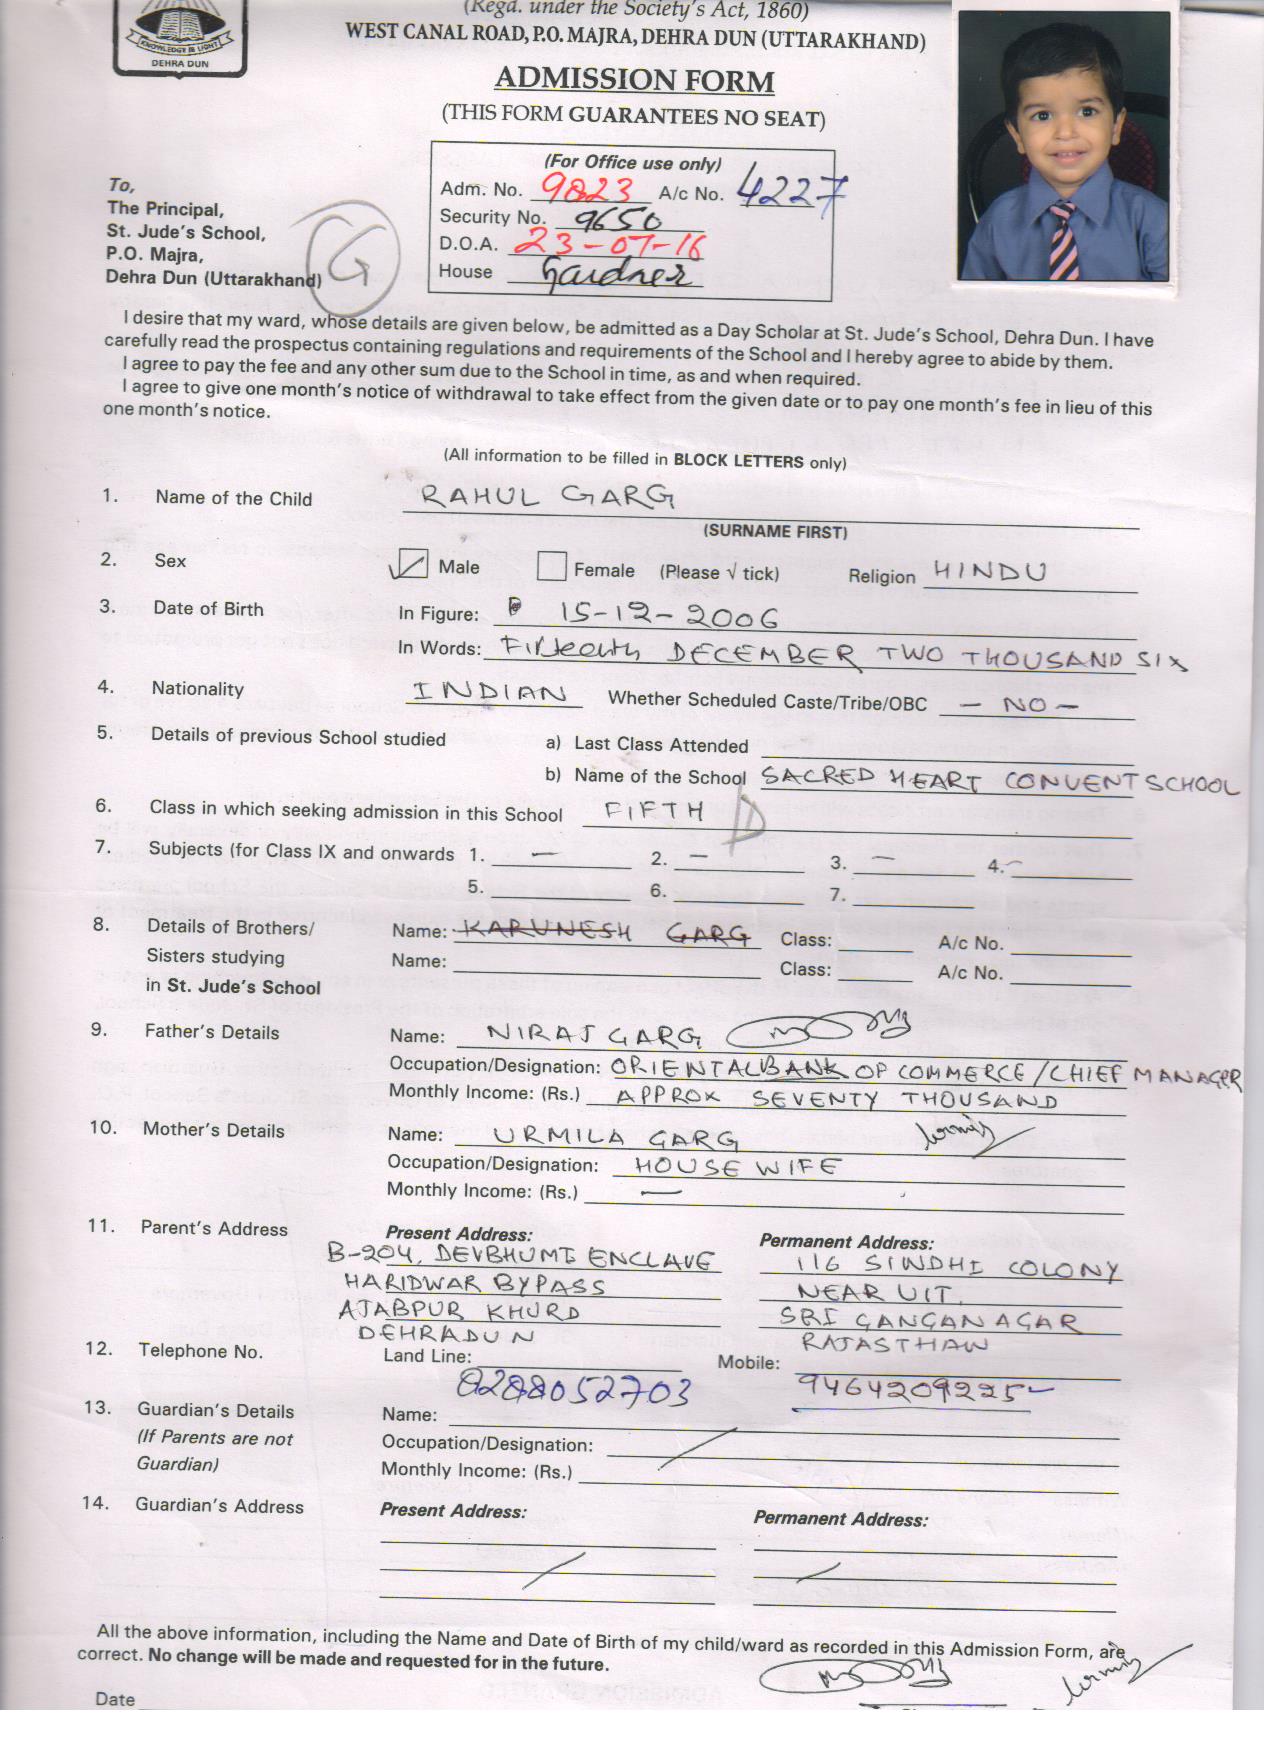 (Regd. under the Society's Act, 1860)
WEST CANAL ROAD, P.O. MAJRA, DEHRA DUN (UTTARAKHAND)
KNOWLEDGE IS LIGHT
DEHRA DUN
ADMISSION FORM
(THIS FORM GUARANTEES NO SEAT)
(For Office use only)
Adm. No. 9823 A/c No. 4227
Security No. 9650
D.O.A. 23-07-16
House Gardner
To,
The Principal,
St. Jude's School,
P.O. Majra,
Dehra Dun (Uttarakhand)
G
I desire that my ward, whose details are given below, be admitted as a Day Scholar at St. Jude's School, Dehra Dun. I have
carefully read the prospectus containing regulations and requirements of the School and I hereby agree to abide by them.
I agree to pay the fee and any other sum due to the School in time, as and when required.
I agree to give one month's notice of withdrawal to take effect from the given date or to pay one month's fee in lieu of this
one month's notice.
(All information to be filled in BLOCK LETTERS only)
1. Name of the Child RAHUL GARG
(SURNAME FIRST)
2. Sex Male Female (Please √ tick) Religion HINDU
3. Date of Birth In Figure: 15-12-2006
In Words: Fifteenth DECEMBER TWO THOUSAND SIX
4. Nationality INDIAN Whether Scheduled Caste/Tribe/OBC - NO -
5. Details of previous School studied a) Last Class Attended
b) Name of the School SACRED HEART CONVENT SCHOOL
6. Class in which seeking admission in this School FIFTH D
7. Subjects (for Class IX and onwards 1. - 2. - 3. - 4. -
5. 6. 7.
8. Details of Brothers/ Name: KARUNESH GARG Class: A/c No.
Sisters studying Name: Class: A/c No.
in St. Jude's School
9. Father's Details Name: NIRAJ GARG
Occupation/Designation: ORIENTAL BANK OF COMMERCE / CHIEF MANAGER
Monthly Income: (Rs.) APPROX SEVENTY THOUSAND
10. Mother's Details Name: URMILA GARG
Occupation/Designation: HOUSE WIFE
Monthly Income: (Rs.) -
11. Parent's Address Present Address: Permanent Address:
B-204, DEVBHUMI ENCLAVE 116 SINDHI COLONY
HARIDWAR BYPASS NEAR UIT,
AJABPUR KHURD SRI GANGANAGAR
DEHRADUN RAJASTHAN
12. Telephone No. Land Line: Mobile:
9464209225
13. Guardian's Details Name:
(If Parents are not Occupation/Designation:
Guardian) Monthly Income: (Rs.)
14. Guardian's Address Present Address: Permanent Address:
All the above information, including the Name and Date of Birth of my child/ward as recorded in this Admission Form, are
correct. No change will be made and requested for in the future.
Date